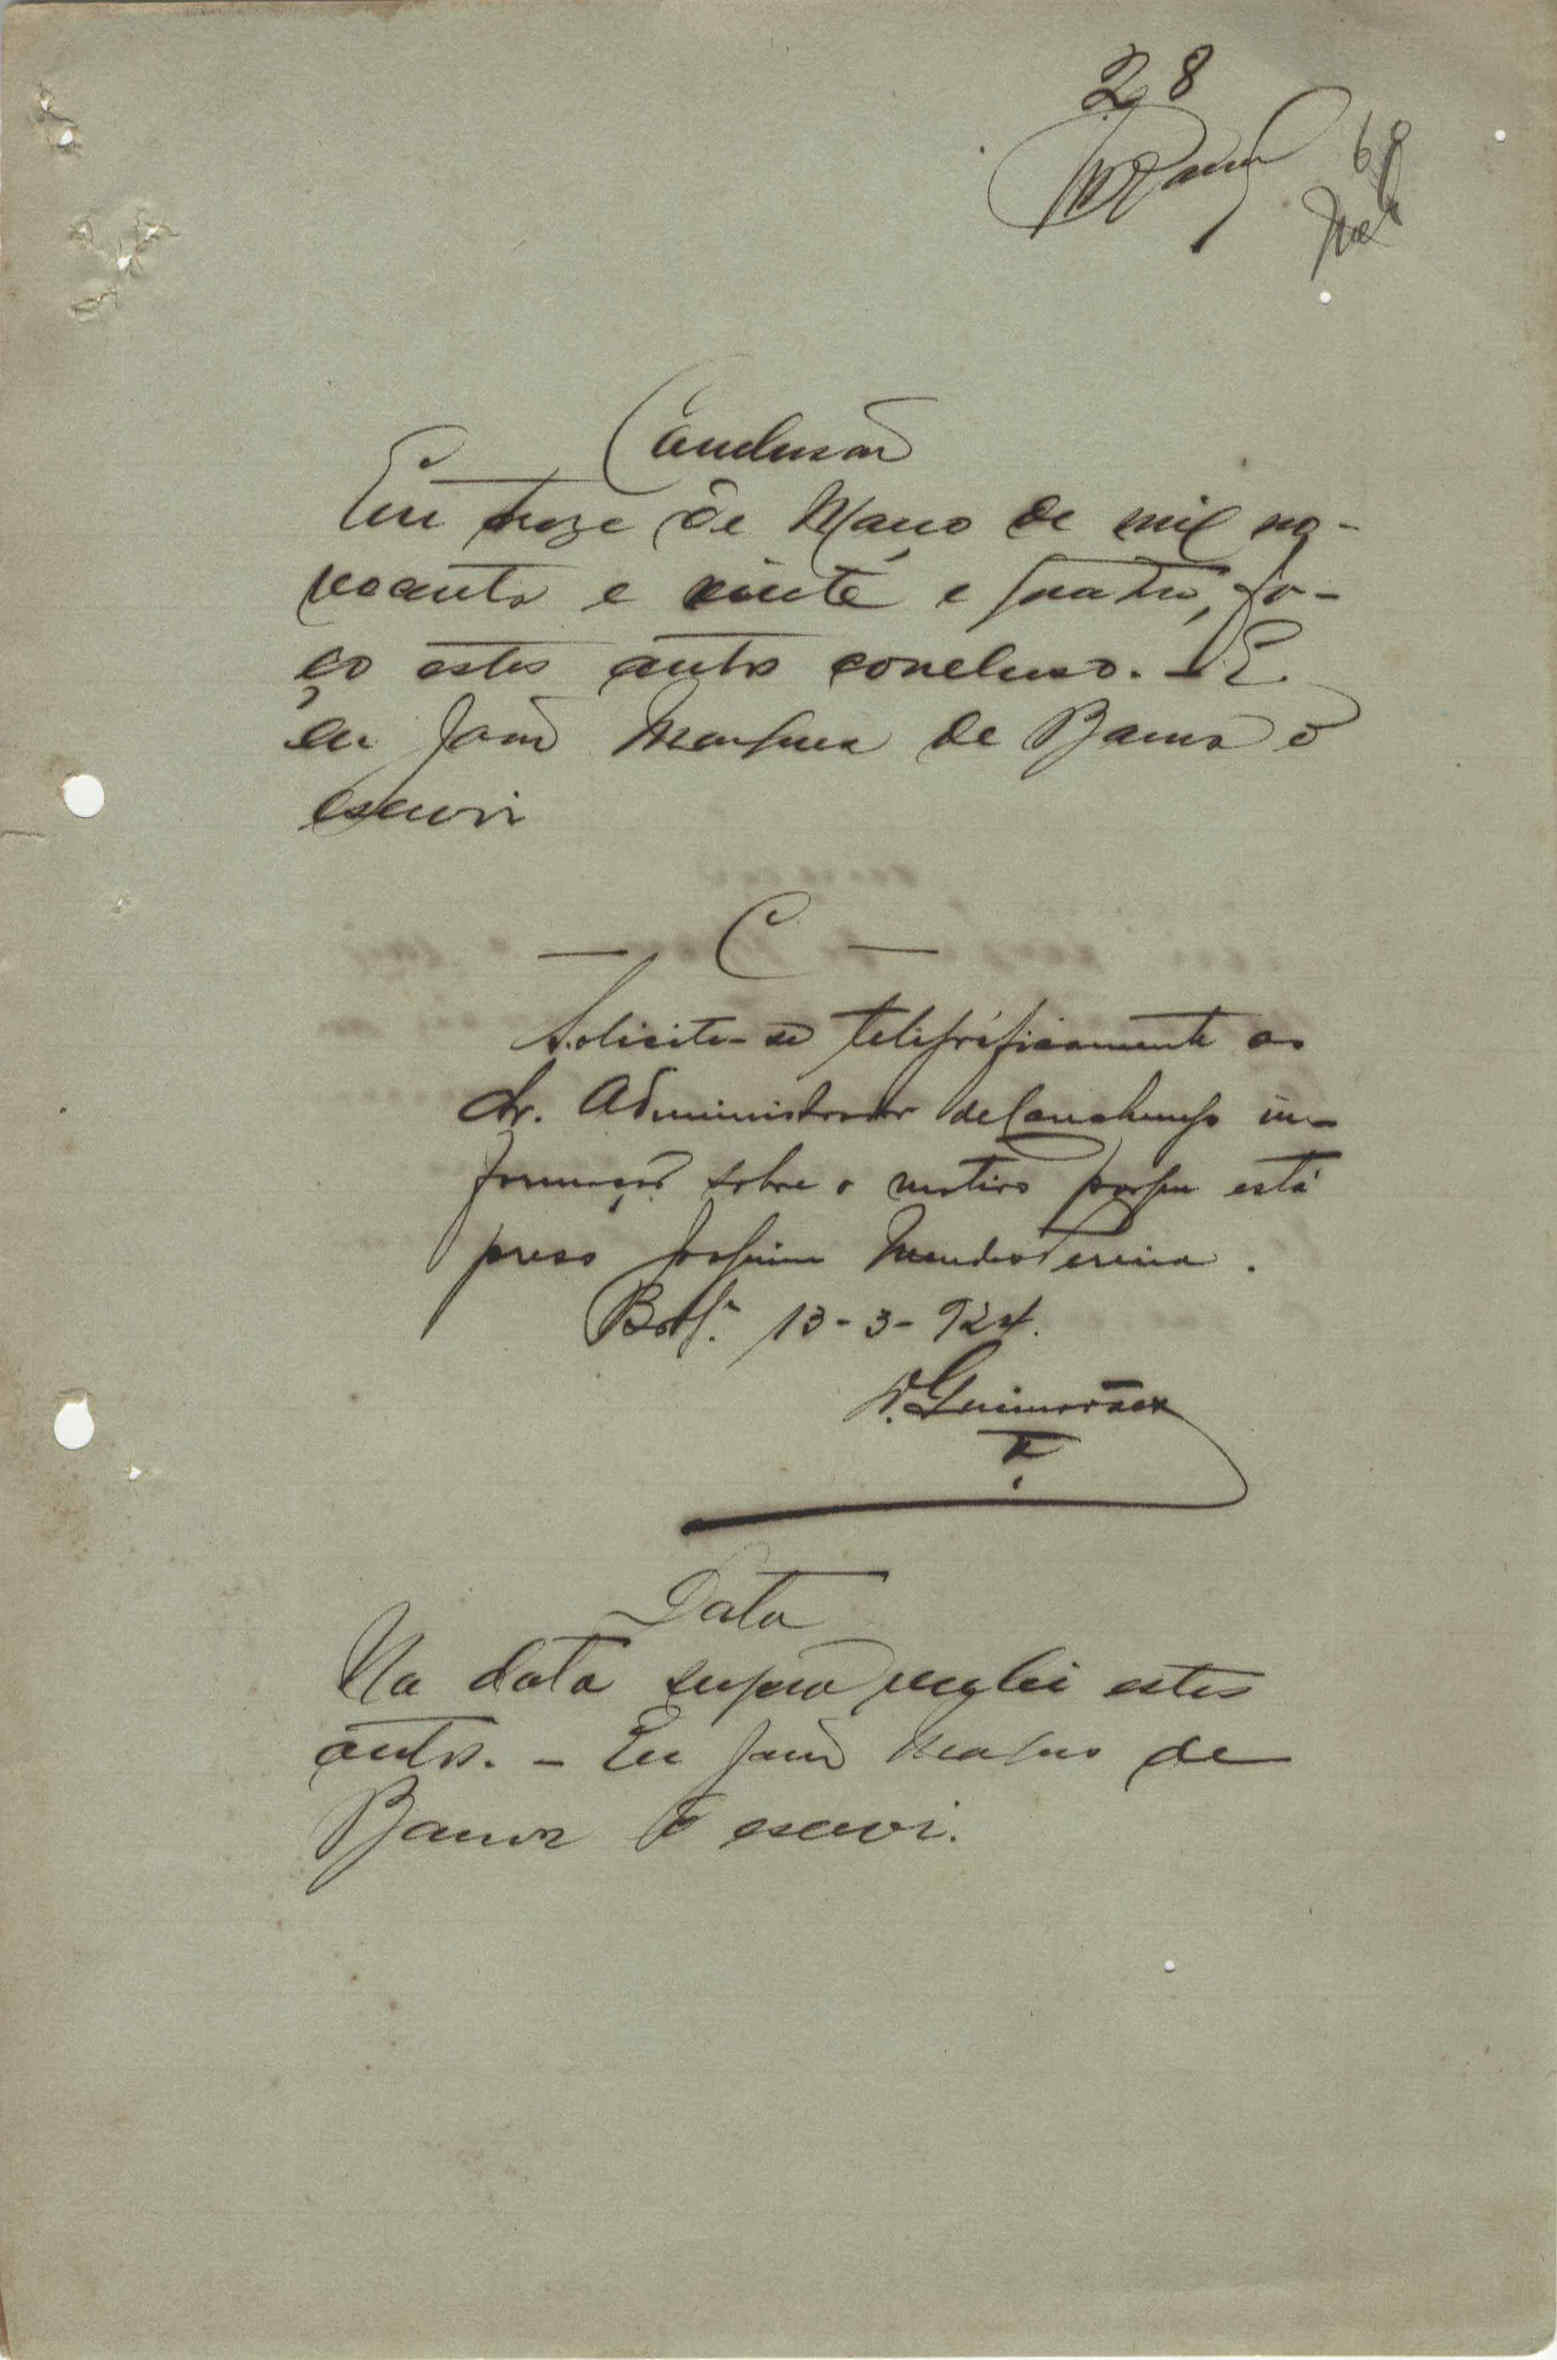 28
68
Conclusão
Em treze de Março de mil no-
vecentos e vinte e quatro, fa-
ço estes autos conclusos. - E
eu João Marques de Barros o
escrevi
- C -
Solicite-se telegráficamente ao
Sr. Administrador de Canchungo in-
formação sobre o motivo porque está
preso Joaquim Mendes Pereira.
13-3-924.
Guimarães
Data
Na data supra recebi estes
autos. - Eu João Marques de
Barros o escrevi.